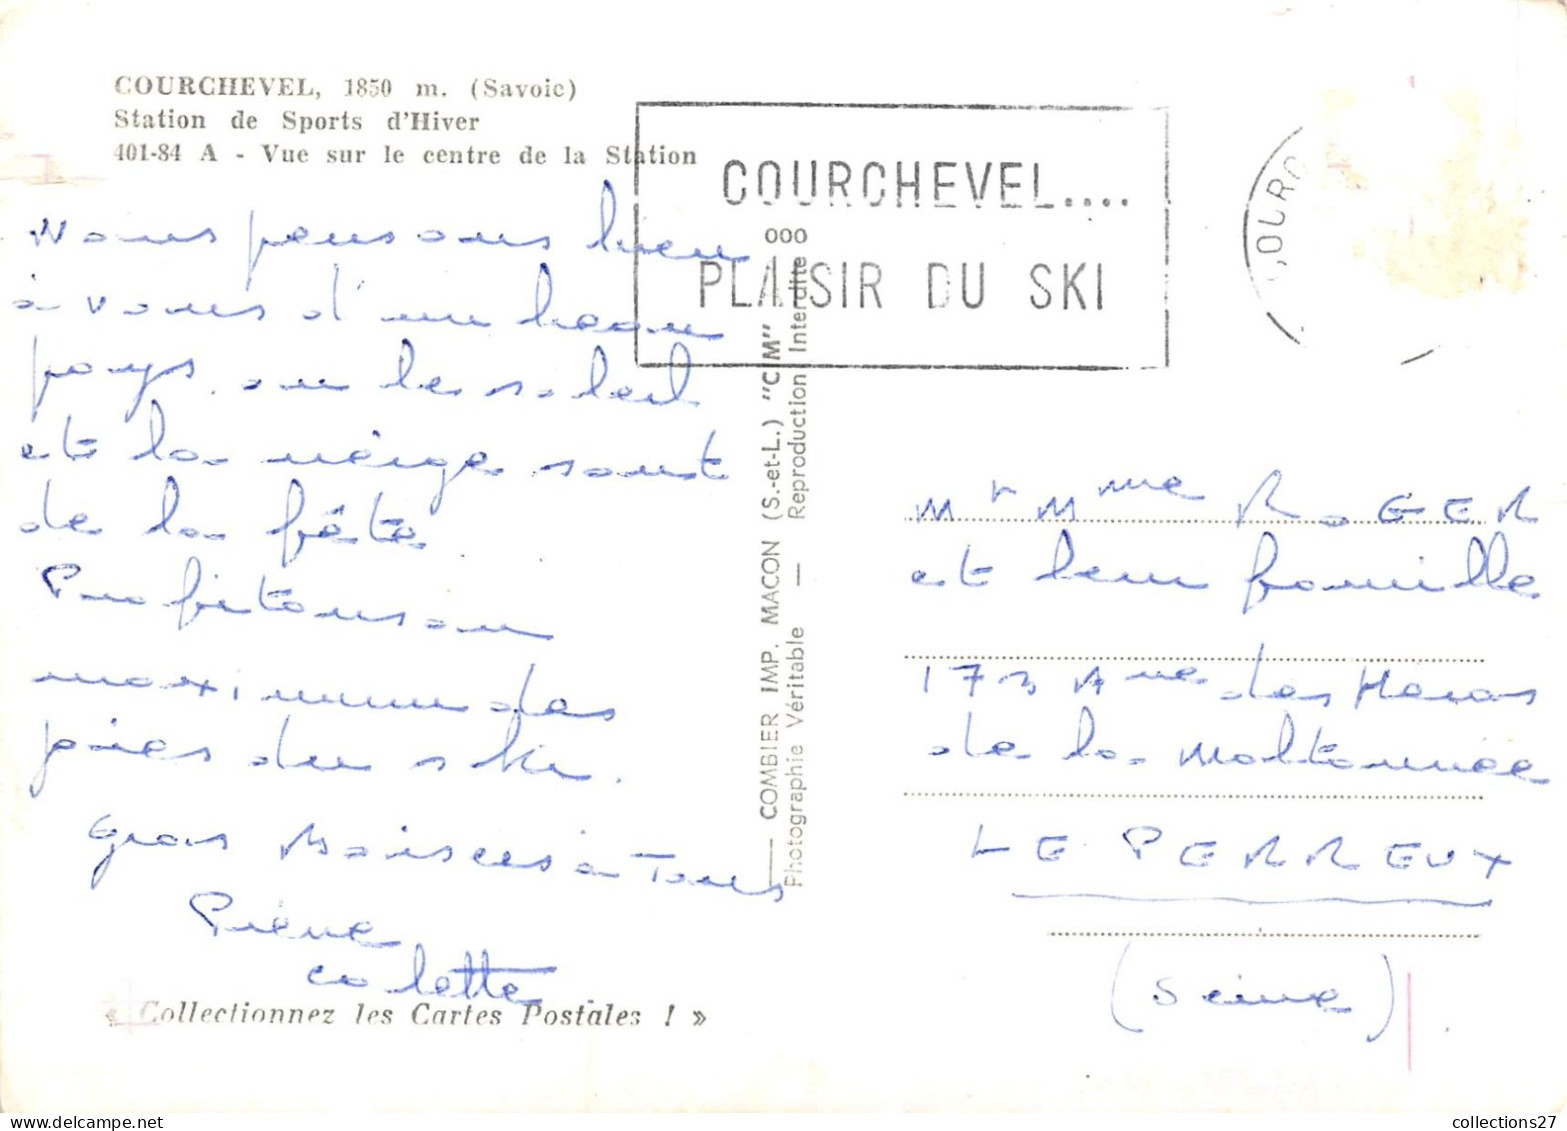 COURCHEVEL, 1850 m. (Savoie)
Station de Sports d'Hiver
401-84 A - Vue sur le centre de la Station
COURCHEVEL....
PLAISIR DU SKI
COURC
Nous pensons bien
à vous d'un beau
pays où le soleil
et la neige sont
de la fête.
Profitons au
maximum des
joies du ski.
Gros Baisers à Tous
Pierre
Colette
« Collectionnez les Cartes Postales ! »
COMBIER IMP. MACON (S.-et-L.) "CIM" 000
Photographie Véritable — Reproduction Interdite
Mr Mme ROGER
et leur famille
173 Ave des
de la Maltournée
LE PERREUX
(Seine)
collections27